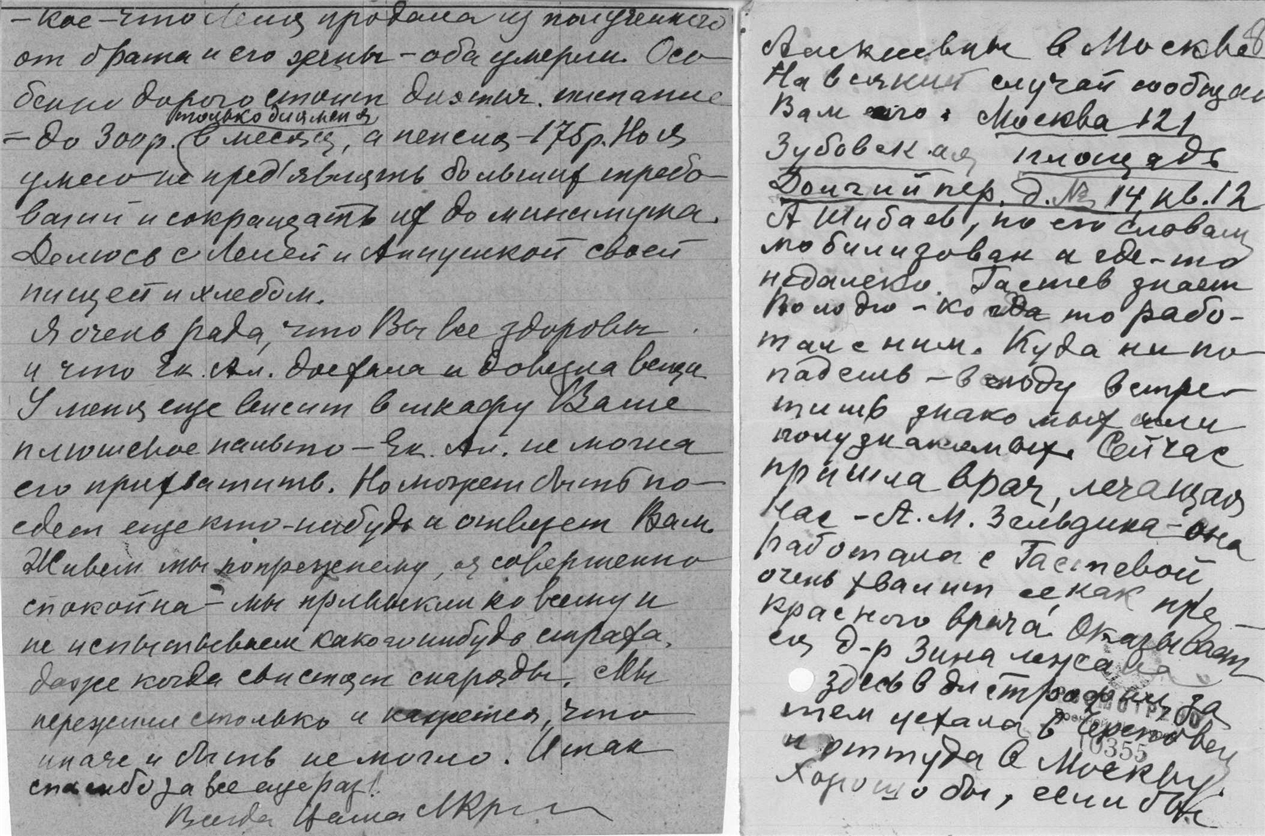 - кое-что Леля продала из полученного
от брата и его жены - оба умерли. Осо-
бенно дорого стоит диэтич. питание
только для меня
- до 300р. (в месяц, а пенсия - 175р. Но я
умею не пред'являть больших требо-
ваний и сокращать их до минимума.
Делюсь с Лелей и Аннушкой своей
пищей и хлебом.
Я очень рада, что Вы все здоровы
и что Ек. Ал. доехала и довезла вещи
У меня еще висит в шкафу Ваше
плюшевое пальто - Ек. Ал. не могла
его прихватить. Но может быть по-
едет еще кто-нибудь и отвезет Вам.
Живем мы попрежнему, я совершенно
спокойна - мы привыкли ко всему и
не испытываем какого нибудь страха,
даже когда свистят снаряды. Мы
пережили столько и кажется, что
иначе и быть не могло. Итак
спасибо за все еще раз!
Всегда Ваша
Алексеевны в Москве
8
На всякий случай сообщаю
Вам его: Москва 121
Зубовская площадь
Долгий пер. д. № 14 кв. 12
А Шибаев, по его словам
мобилизован и где-то
недалеко. Гастев знает
Володю - когда то рабо-
тал с ним. Куда ни по-
падешь - всюду встре-
тишь знакомых или
полузнакомых. Сейчас
пришла врач, лечащая
нас - А. М. Зельдина - она
работала с Гастевой
очень хвалит ее, как пре-
красного врача. Оказывает
ся д-р Зина лежала
здесь в дистрофии, за
тем уехала в Череповец
и оттуда в Москву.
Хорошо бы, если бы
10355